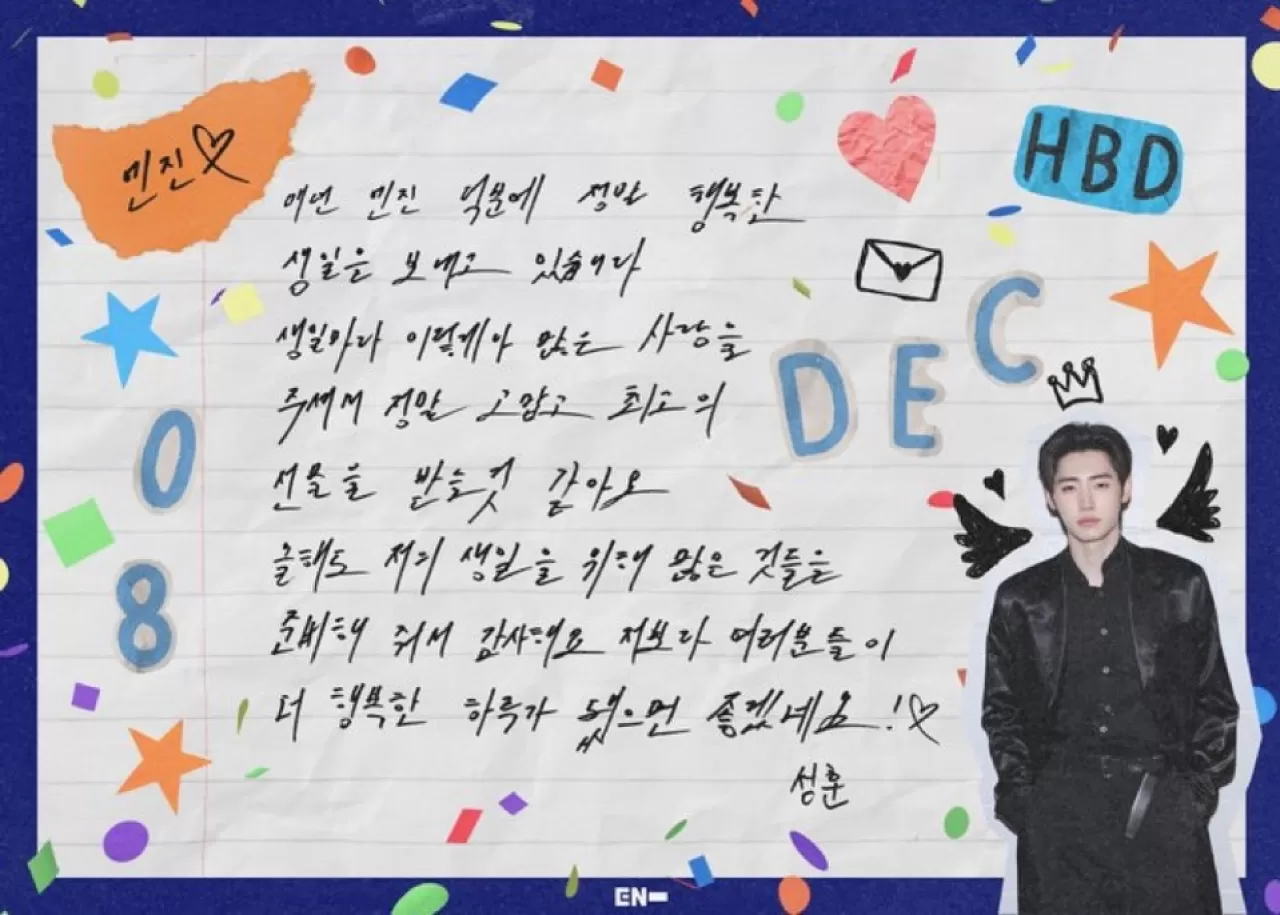 엔진♡
HBD
DEC
08
매년 엔진 덕분에 정말 행복한
생일을 보내고 있습니다
생일마다 이렇게나 많은 사랑을
주셔서 정말 고맙고 최고의
선물을 받는것 같아요
올해도 저의 생일을 위해 많은 것들을
준비해 줘서 감사해요 저보다 여러분들이
더 행복한 하루가 됐으면 좋겠네요!♡
성훈
EN-